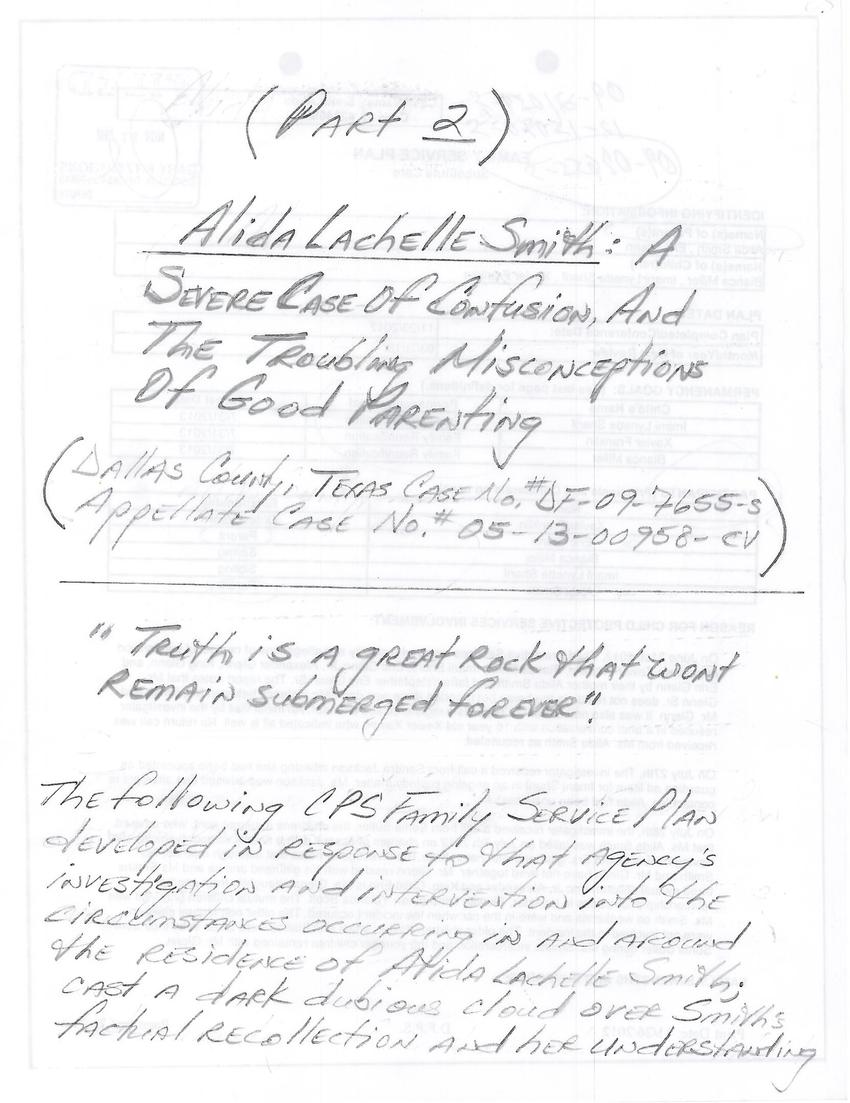 (Part 2)
Alida Lachelle Smith: A
Severe Case Of Confusion, And
The Troubling Misconceptions
Of Good Parenting
(Dallas County, Texas Case No.# DF-09-7655-S
Appellate Case No.# 05-13-00958-CV)
"Truth is a great Rock that wont
Remain submerged forever"
The following CPS Family Service Plan
developed in response to that Agency's
investigation and intervention into the
circumstances occurring in and around
the residence of Alida Lachelle Smith;
cast a dark dubious cloud over Smith's
factual recollection and her understanding